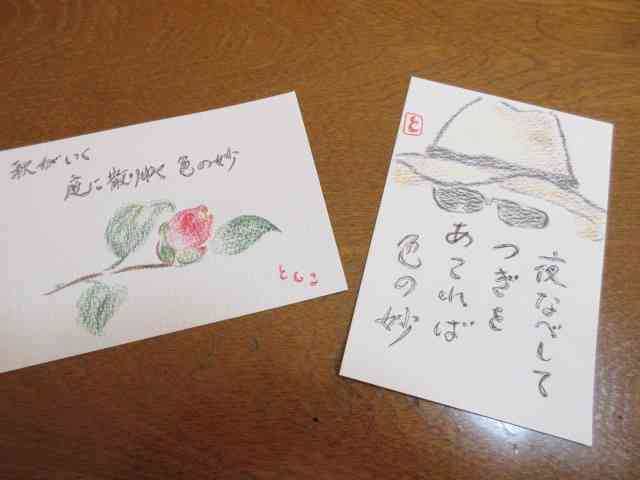 秋がいく
庭に散りゆく 色の妙
としこ
と
夜なべして
つぎを
あてれば
色の妙